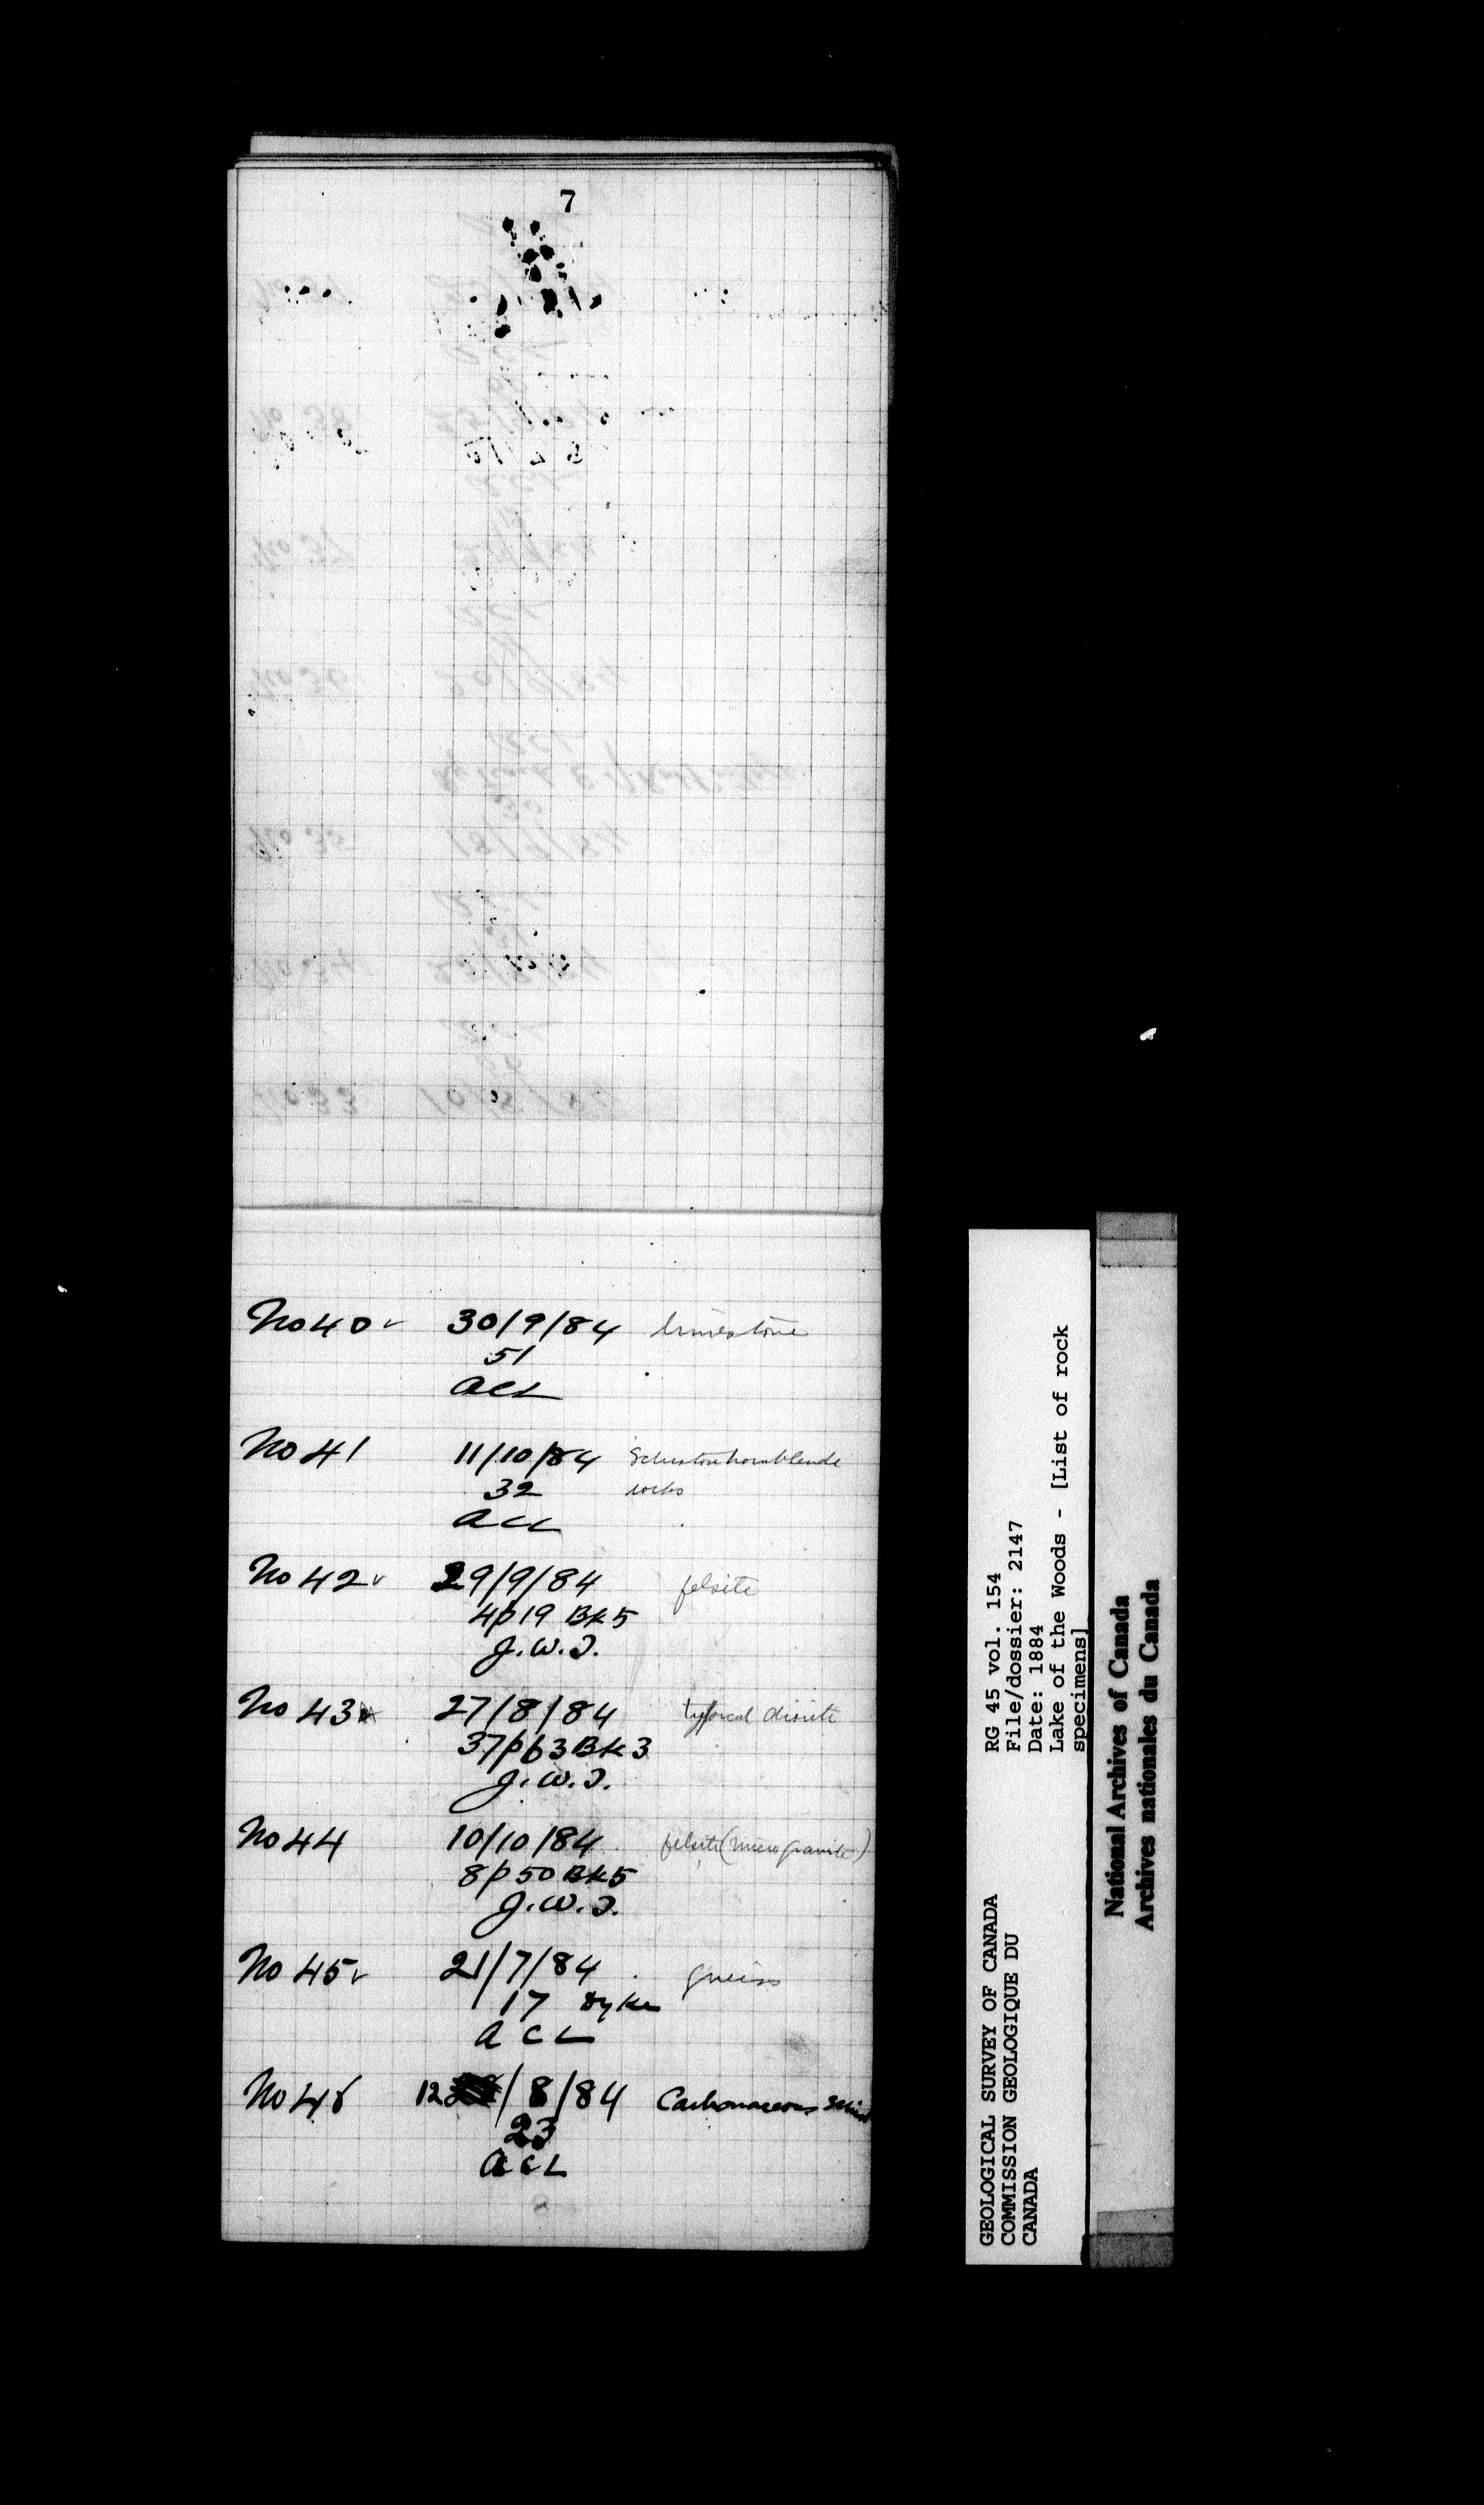 7
No 40 ✓ 30/9/84 limestone
51
ACL
No 41 11/10/84 Schistose hornblende
rocks
ACL
32
No 42 ✓ 29/9/84 felsite
4p19 Bk5
J.W.T.
No 43 27/8/84 typical diorite
37p63 Bk3
J.W.T.
No 44 10/10/84 felsite (micro granite)
8p50 Bk5
J.W.T.
No 45 ✓ 21/7/84 gneiss
17 Dyke
ACL
No 46 12/8/84 Carbonaceous schist
23
ACL
GEOLOGICAL SURVEY OF CANADA
COMMISSION GEOLOGIQUE DU
CANADA
RG 45 vol. 154
File/dossier: 2147
Date: 1884
Lake of the Woods - [List of rock
specimens]
National Archives of Canada
Archives nationales du Canada